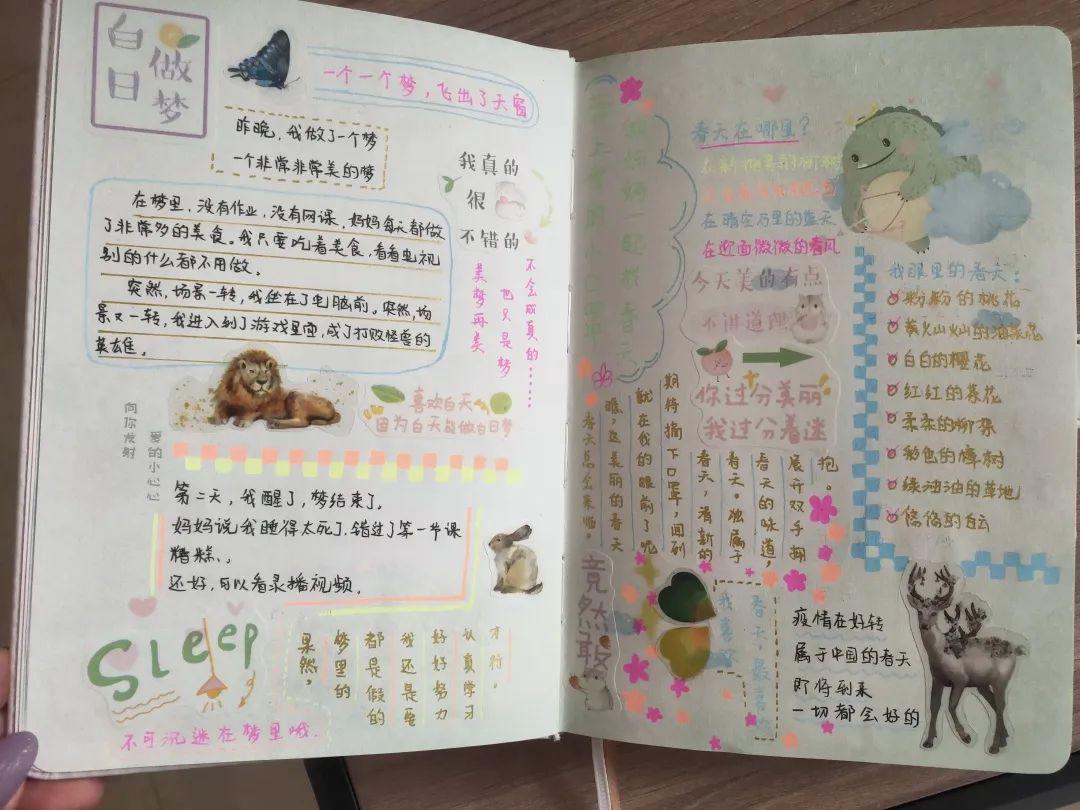 白日
做梦
一个一个梦，飞出了天窗
昨晚，我做了一个梦
一个非常非常美的梦
我真的
很
不错的
在梦里，没有作业，没有网课，妈妈每天都做
了非常多的美食。我只要吃着美食，看看电视
别的什么都不用做。
突然，场景一转，我坐在了电脑前。突然，场
景又一转，我进入到了游戏里面，成了打败怪兽的
英雄。
不会成真的……
也只是梦
美梦再美
喜欢白天
因为白天能做白日梦
向你发射
爱的小心心
第二天，我醒了，梦结束了。
妈妈说我睡得太死了，错过了第一节课
糟糕。
还好，可以看录播视频。
SLeep
果然，
梦里的
都是假的
我还是要
好好努力
认真学习
才行。
不可沉迷在梦里哦.
春天在哪里？
在晴空万里的蓝天
在迎面微微的春风
今天美的有点
不讲道理
你过分美丽
我过分着迷
抱。
展开双手拥
春天的味道，
春天。独属于
春天，清新的
期待摘下口罩，闻到
就在我的眼前了呢
瞧，这美丽的春天
春天总会来临。
竟然敢
我喜欢
春天，最喜欢
我眼里的春天：
粉粉的桃花
黄灿灿的油菜花
白白的樱花
红红的茶花
柔柔的柳条
彩色的樟树
绿油油的草地
悠悠的白云
疫情在好转
属于中国的春天
即将到来
一切都会好的